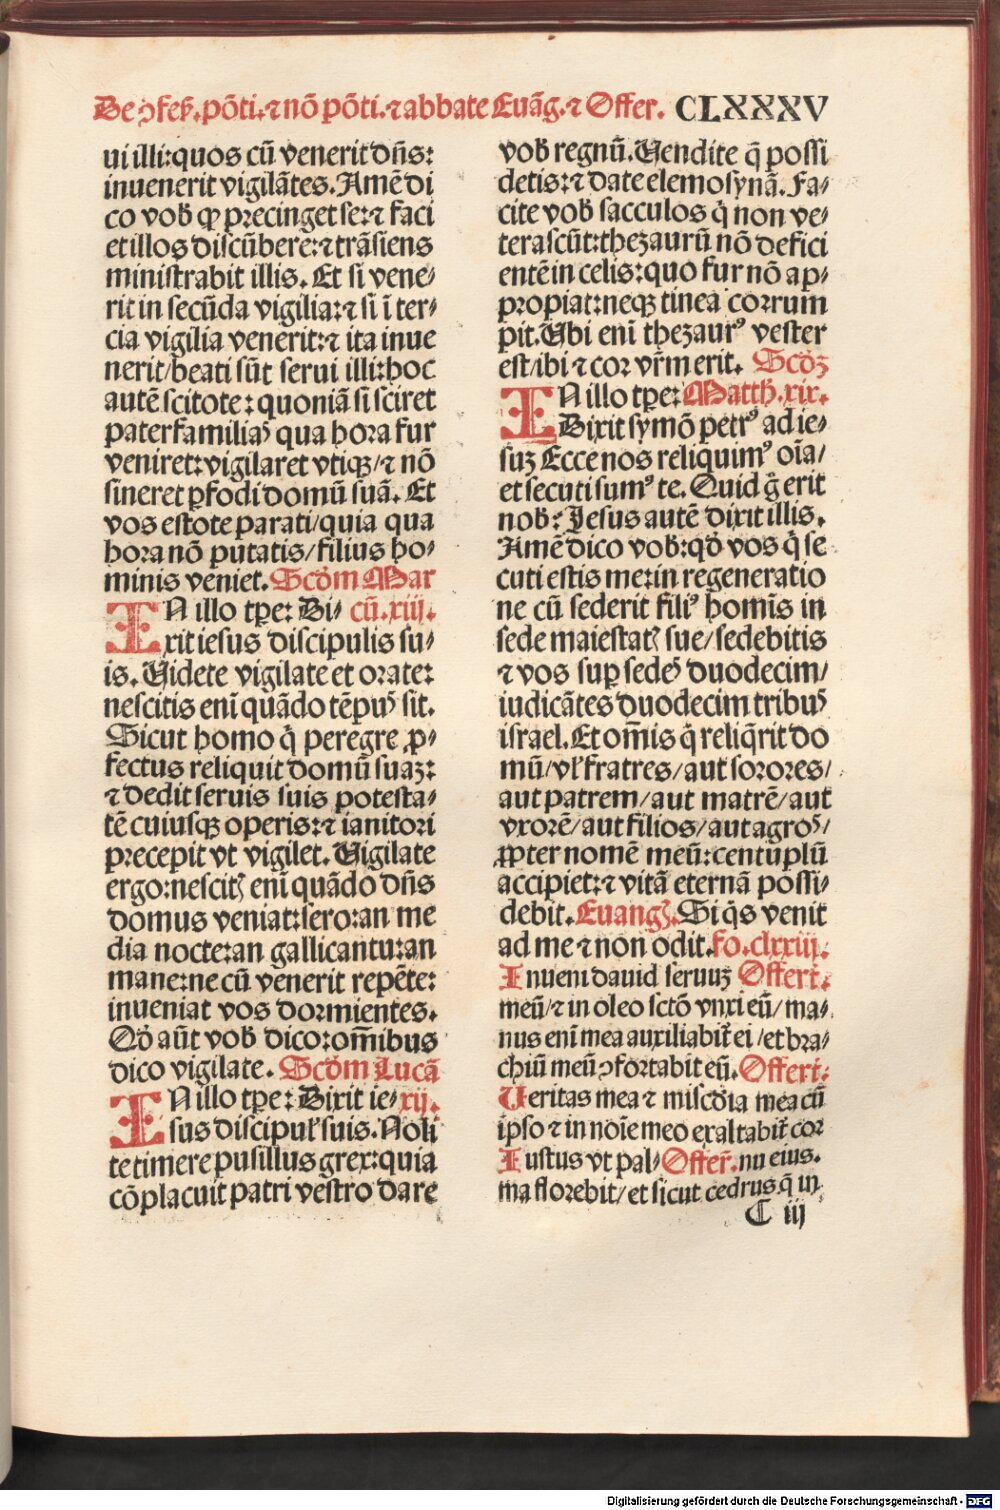 De ꝯfeſẜ.põti.⁊ nõ põti.⁊ abbate Euãg.⁊ Offer. CLXXXV
ui illi:quos cũ venerit dñs:
inuenerit vigilãtes.Amẽ di
co vob̾ ꝙ precinget se:⁊ faci
et illos discũbere:⁊ trãsiens
ministrabit illis. Et si vene⸗
rit in secũda vigilia:⁊ si ĩ ter⸗
cia vigilia venerit:⁊ ita inue
nerit/beati sũt serui illi:hoc
autẽ scitote: quoniã si sciret
paterfamiliaꝰ qua hora fur
veniret:vigilaret vtiqꝫ/⁊ nõ
sineret ꝑfodi domũ suã. Et
vos estote parati/quia qua
hora nõ putatis/filius ho⸗
minis veniet. Scd̾m Mar
IN illo tꝑe: Di⸗ cũ.xiij.
xit iesus discipulis su⸗
is. Videte vigilate et orate:
nescitis eni quãdo tẽpuꝰ sit.
Sicut homo q̇ peregre ꝓ⸗
fectus reliquit domũ suaꝫ:
⁊ dedit seruis suis potesta⸗
tẽ cuiusqꝫ operis:⁊ ianitori
precepit vt vigilet. Vigilate
ergo:nescitꝭ eni quãdo dñs
domus veniat:sero:an me
dia nocte:an gallicantu:an
mane:ne cũ venerit repẽte:
inueniat vos dormientes.
Qd̾ aũt vob̾ dico:om̃ibus
dico vigilate. Scd̾m Lucã
IN illo tꝑe: Dixit ie⸗ xij.
sus discipul̾ suis. Noli
te timere pusillus grex:quia
cõplacuit patri vestro dare
vob̾ regnũ. Vendite q̃ possi
detis:⁊ date elemosynã. Fa⸗
cite vob̾ sacculos q̇ non ve⸗
terascũt:thezaurũ nõ defici
entẽ in celis:quo fur nõ ap⸗
propiat:neqꝫ tinea corrum
pit. Vbi eni thezaurꝰ vester
est/ibi ⁊ cor vr̃m erit. Scd̾ꝫ
IN illo tꝑe: Matth.xix.
Dixit symõ petrꝰ ad ie⸗
suꝫ Ecce nos reliquimꝰ oĩa/
et secuti sumꝰ te. Quid g̊ erit
nob̾: Jesus autẽ dixit illis.
Amẽ dico vob̾:qd̾ vos q̇ se
cuti estis me:in regeneratio
ne cũ sederit filiꝰ homĩs in
sede maiestatꝭ sue/sedebitis
⁊ vos suꝑ sedeꝰ duodecim/
iudicãtes duodecim tribuꝰ
israel. Et om̃is q̇ reliq̇rit do
mũ/vl̾ fratres/aut sorores/
aut patrem/aut matrẽ/aut
vxorẽ/aut filios/aut agroꝰ/
ꝓpter nomẽ meũ:centũplũ
accipiet:⁊ vitã eternã possi⸗
debit. Euangꝭ. Si q̇s venit
ad me ⁊ non odit. fo.clxxiij.
Inueni dauid seruuꝫ Offert̾.
meũ/⁊ in oleo sctõ vnxi eũ/ma⸗
nus eni mea auxiliabit̾ ei/et bra⸗
chiũ meũ ꝯfortabit eũ. Offert̾.
Veritas mea ⁊ miscd̾ia mea cũ
ipso ⁊ in noĩe meo exaltabit̾ cor
Iustus vt pal⸗ Offer̃. nu eius.
ma florebit/et sicut cedrus q̃ in
C iij